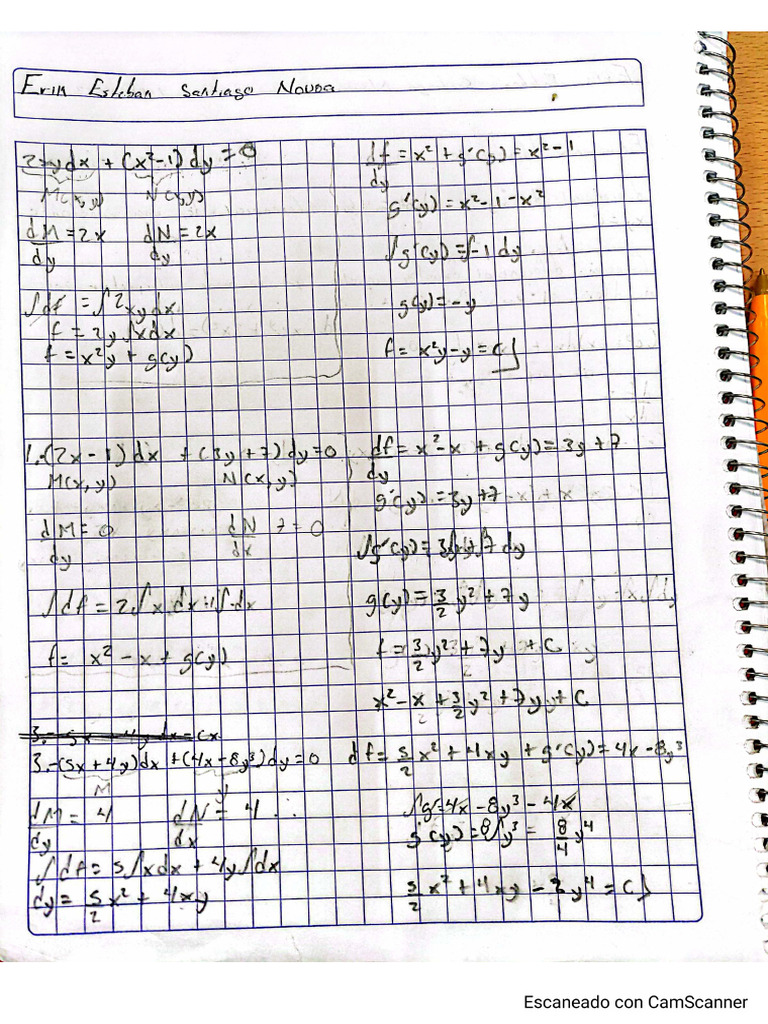 Erik Esteban Santiago
2xydx + (x²-1)dy = 0
M(x,y) N(x,y)
dM/dy = 2x dN/dy = 2x
∫df = ∫2xydx
f = 2y∫xdx
f = x²y + g(y)
df/dy = x² + g'(y) = x²-1
g'(y) = x²-1-x²
∫g'(y) = ∫-1 dy
g(y) = -y
f = x²y-y = C
1.-(2x-1)dx + (3y+7)dy=0
M(x,y) N(x,y)
dM/dy = 0 dN/dx 7 = 0
∫df = 2∫x dx-1∫dx
f = x² - x + g(y)
df/dy = x²-x + g(y) = 3y+7
g'(y) = 3y+7
∫g'(y) = 3∫y+7 dy
g(y) = 3/2 y² + 7y
f = 3/2 y² + 7y + C
x² - x + 3/2 y² + 7y + C
3.-(5x+4y)dx + (4x-8y³)dy=0
M
dM/dy = 4 dN/dx = 4 ∴
∫df = 5∫xdx + 4y∫dx
dy = 5/2 x² + 4xy
df = 5/2 x² + 4xy + g'(y) = 4x-8y³
∫g' = 4x - 8y³ - 4x
g'(y) = 8∫y³ = 8/4 y⁴
5/2 x² + 4xy - 2y⁴ = C
Escaneado con CamScanner